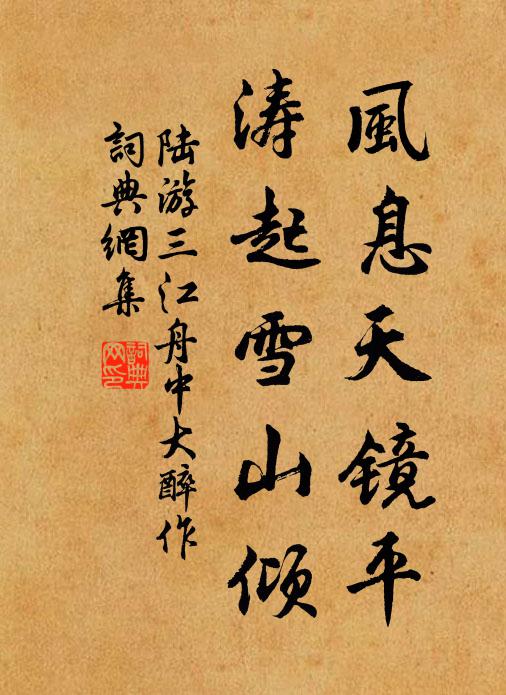 風息天镜平
涛起雪山倾
陆游三江舟中大醉作
詞典網集
詞典网印